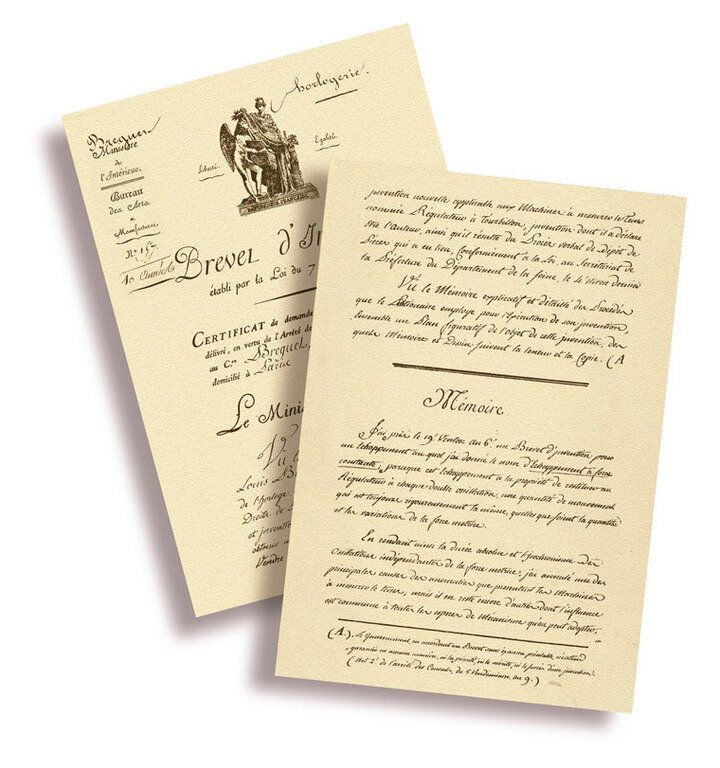 Breguet
horlogerie.
Ministère
de
l'Intérieur.
Bureau
des Arts
et
Manufactures
Liberté.
Egalité.
No. 157.
Brevet d'In
établi par la Loi du 7
CERTIFICAT de demande
délivré, en vertu de l'Arrêté de
au Cen. Breguet,
domicilié à Paris
Le Mini
Vu
Louis B
de l'Horloge
Droits de
et invent
obtenir
Vendre
invention nouvelle applicable aux Machines à mesurer le tems
nommée Régulateur à Tourbillon, invention dont il a déclaré
être l'auteur, ainsi qu'il résulte du Procès verbal de Dépôt de
Pièces qui a eu lieu, Conformément à la Loi, au Secrétariat de
la Préfecture du Département de la Seine, le
Vu le Mémoire explicatif et détaillé des Procédés
que le Pétitionnaire employe pour l'éxécution de son invention,
Ensemble un Plan figuratif de l'objet de cette invention; des
quels Mémoire et Dessin suivent la teneur et la Copie. (A
Mémoire.
J'ai pris le 19 Ventôse an 6e. un Brevet d'invention pour
un Echappement au quel j'ai donné le nom d'Echappement à force
constante, parceque cet Echappement a la propriété de restituer au
Régulateur à chaque double oscillation, une quantité de mouvement
qui est toujours rigoureusement la même, quelles que soient la quantité
et les variations de la force motrice.
En rendant ainsi la durée absolue et l'Isochronisme des
Oscillations indépendantes de la force motrice; j'ai annulé une des
principales causes des anomalies que présentent les Machines
à mesurer le tems, mais il en reste encore d'autres dont l'influence
est commune à toutes les espèces de Mécanisme qu'on peut adopter,
(A) Le Gouvernement, en accordant un Brevet sans éxamen préalable, n'entend
garantir en aucune manière, ni la priorité, ni le mérite, ni le succès d'une invention.
(Art 2e. de l'arrêté des Consuls, du 5 Vendémiaire an 9.)